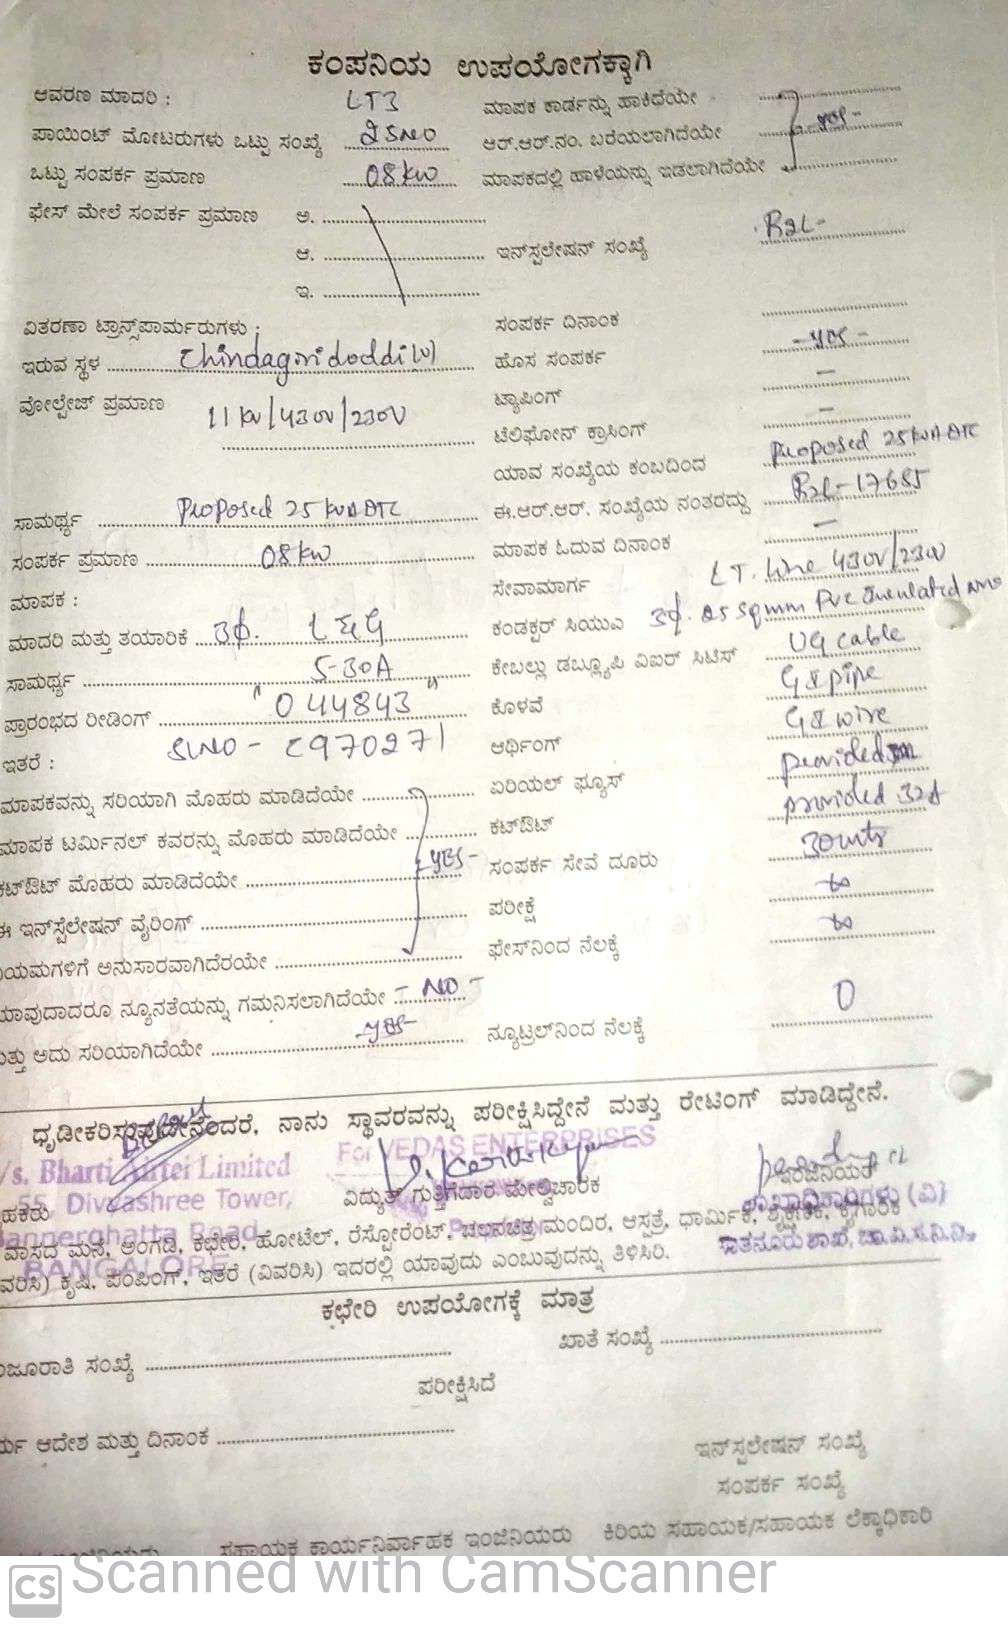 ಕಂಪನಿಯ ಉಪಯೋಗಕ್ಕಾಗಿ
ಆವರಣ ಮಾದರಿ : LT3
ಪಾಯಿಂಟ್ ಮೋಟರುಗಳು ಒಟ್ಟು ಸಂಖ್ಯೆ
ಒಟ್ಟು ಸಂಪರ್ಕ ಪ್ರಮಾಣ 08 kw
ಫೇಸ್ ಮೇಲೆ ಸಂಪರ್ಕ ಪ್ರಮಾಣ ಅ.
ಆ.
ಇ.
ವಿತರಣಾ ಟ್ರಾನ್ಸ್‌ಪಾರ್ಮರುಗಳು :
ಇರುವ ಸ್ಥಳ Chindagiridoddi (v)
ವೋಲ್ಟೇಜ್ ಪ್ರಮಾಣ 11 kv/430v/230V
ಸಾಮರ್ಥ್ಯ Proposed 25 kVA DTC
ಸಂಪರ್ಕ ಪ್ರಮಾಣ 08 kw
ಮಾಪಕ :
ಮಾದರಿ ಮತ್ತು ತಯಾರಿಕೆ 3φ. L&G
ಸಾಮರ್ಥ್ಯ 5-30A
ಪ್ರಾರಂಭದ ರೀಡಿಂಗ್ "044843"
ಇತರೆ : SLNO - C970271
ಮಾಪಕವನ್ನು ಸರಿಯಾಗಿ ಮೊಹರು ಮಾಡಿದೆಯೇ
ಮಾಪಕ ಟರ್ಮಿನಲ್ ಕವರನ್ನು ಮೊಹರು ಮಾಡಿದೆಯೇ
ಕಟ್‌ಔಟ್ ಮೊಹರು ಮಾಡಿದೆಯೇ YES-
ಈ ಇನ್‌ಸ್ಟೆಲೇಷನ್ ವೈರಿಂಗ್
ಯಮಗಳಿಗೆ ಅನುಸಾರವಾಗಿದೆರಯೇ
ಯಾವುದಾದರೂ ನ್ಯೂನತೆಯನ್ನು ಗಮನಿಸಲಾಗಿದೆಯೇ - NO -
ಮತ್ತು ಅದು ಸರಿಯಾಗಿದೆಯೇ -yes-
ಮಾಪಕ ಕಾರ್ಡನ್ನು ಹಾಕಿದೆಯೇ
ಆರ್.ಆರ್.ನಂ. ಬರೆಯಲಾಗಿದೆಯೇ yes-
ಮಾಪಕದಲ್ಲಿ ಹಾಳೆಯನ್ನು ಇಡಲಾಗಿದೆಯೇ
ಇನ್‌ಸ್ಟಲೇಷನ್ ಸಂಖ್ಯೆ
ಸಂಪರ್ಕ ದಿನಾಂಕ
ಹೊಸ ಸಂಪರ್ಕ -yes-
ಟ್ಯಾಪಿಂಗ್ -
ಟೆಲಿಫೋನ್ ಕ್ರಾಸಿಂಗ್ -
ಯಾವ ಸಂಖ್ಯೆಯ ಕಂಬದಿಂದ Proposed 25 kVA DTC
ಈ.ಆರ್.ಆರ್. ಸಂಖ್ಯೆಯ ನಂತರದ್ದು
ಮಾಪಕ ಓದುವ ದಿನಾಂಕ -
ಸೇವಾಮಾರ್ಗ LT. Line 430V/230V
ಕಂಡಕ್ಟರ್ ಸಿಯುಎ 3φ. 25 sqmm Pvc
ಕೇಬಲ್ಲು ಡಬ್ಲ್ಯೂಪಿ ವಿಐರ್ ಸಿಟಿಸ್ UG cable
ಕೊಳವೆ GI pipe
ಆರ್ಥಿಂಗ್ GI wire
ಏರಿಯಲ್ ಫ್ಯೂಸ್ provided
ಕಟ್‌ಔಟ್ provided 32A
ಸಂಪರ್ಕ ಸೇವೆ ದೂರು 30mts
ಪರೀಕ್ಷೆ ∞
ಫೇಸ್‌ನಿಂದ ನೆಲಕ್ಕೆ ∞
ನ್ಯೂಟ್ರಲ್‌ನಿಂದ ನೆಲಕ್ಕೆ 0
ನಾನು ಸ್ಥಾವರವನ್ನು ಪರೀಕ್ಷಿಸಿದ್ದೇನೆ ಮತ್ತು ರೇಟಿಂಗ್ ಮಾಡಿದ್ದೇನೆ.
For VEDAS ENTERPRISES
/s. Bharti Airtel Limited
55, Divyashree Tower,
Bannerghatta Road
BANGALORE
ವಿದ್ಯುತ್ ಗುತ್ತಿಗೆದಾರ ಮೇಲ್ವಿಚಾರಕ
ವಾಸದ ಮನೆ, ಅಂಗಡಿ, ಕಛೇರಿ, ಹೋಟೆಲ್, ರೆಸ್ಟೋರೆಂಟ್, ಚಲನಚಿತ್ರ ಮಂದಿರ, ಆಸ್ಪತ್ರೆ, ಧಾರ್ಮಿಕ, ಶೈಕ್ಷಣಿಕ, ಕೈಗಾರಿಕೆ
(ವಿವರಿಸಿ) ಕೃಷಿ, ಪಂಪಿಂಗ್, ಇತರೆ (ವಿವರಿಸಿ) ಇದರಲ್ಲಿ ಯಾವುದು ಎಂಬುವುದನ್ನು ತಿಳಿಸಿರಿ.
ಕಛೇರಿ ಉಪಯೋಗಕ್ಕೆ ಮಾತ್ರ
ಜೂರಾತಿ ಸಂಖ್ಯೆ ಖಾತೆ ಸಂಖ್ಯೆ
ಪರೀಕ್ಷಿಸಿದೆ
ಆದೇಶ ಮತ್ತು ದಿನಾಂಕ
ಇನ್‌ಸ್ಟಲೇಷನ್ ಸಂಖ್ಯೆ
ಸಂಪರ್ಕ ಸಂಖ್ಯೆ
ಸಹಾಯಕ ಕಾರ್ಯನಿರ್ವಾಹಕ ಇಂಜಿನಿಯರು ಕಿರಿಯ ಸಹಾಯಕ/ಸಹಾಯಕ ಲೆಕ್ಕಾಧಿಕಾರಿ
CS Scanned with CamScanner